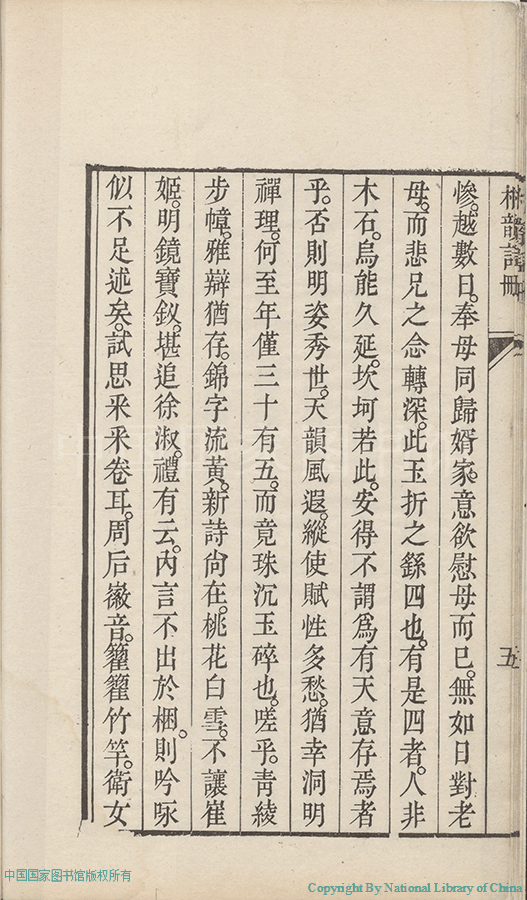 慘。越數日。奉母同歸婿家。意欲慰母而已。無如日對老
母。而悲兄之念轉深。此玉折之繇四也。有是四者。人非
木石。烏能久延。坎坷若此。安得不謂爲有天意存焉者
乎。否則明姿秀世。天韻風遐。縱使賦性多愁。猶幸洞明
禪理。何至年僅三十有五。而竟珠沉玉碎也。嗟乎。靑綾
步幛。雅辯猶存。錦字流黃。新詩尙在。桃花白雪。不讓崔
姬。明鏡寶釵。堪追徐淑。禮有云。內言不出於梱。則吟咏
似不足述矣。試思釆釆卷耳。周后徽音。籊籊竹竿。衛女
五
中国国家图书馆版权所有
Copyright By National Library of China